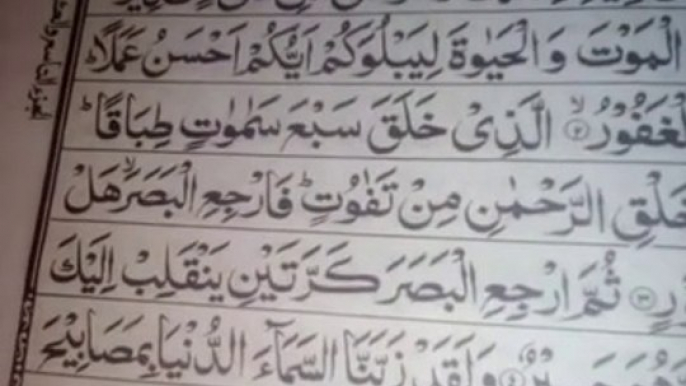 الْمَوْتَ وَالْحَيٰوةَ لِيَبْلُوَكُمْ اَيُّكُمْ اَحْسَنُ عَمَلًا ؕ
لْغَفُوْرُ ۙ﴿۲﴾ الَّذِىْ خَلَقَ سَبْعَ سَمٰوٰتٍ طِبَاقًا ؕ
خَلْقِ الرَّحْمٰنِ مِنْ تَفٰوُتٍ ؕ فَارْجِعِ الْبَصَرَ ۙ هَلْ
رٍ ﴿۳﴾ ثُمَّ ارْجِعِ الْبَصَرَ كَرَّتَيْنِ يَنْقَلِبْ اِلَيْكَ
﴿۴﴾ وَلَقَدْ زَيَّنَّا السَّمَآءَ الدُّنْيَا بِمَصَابِيْحَ